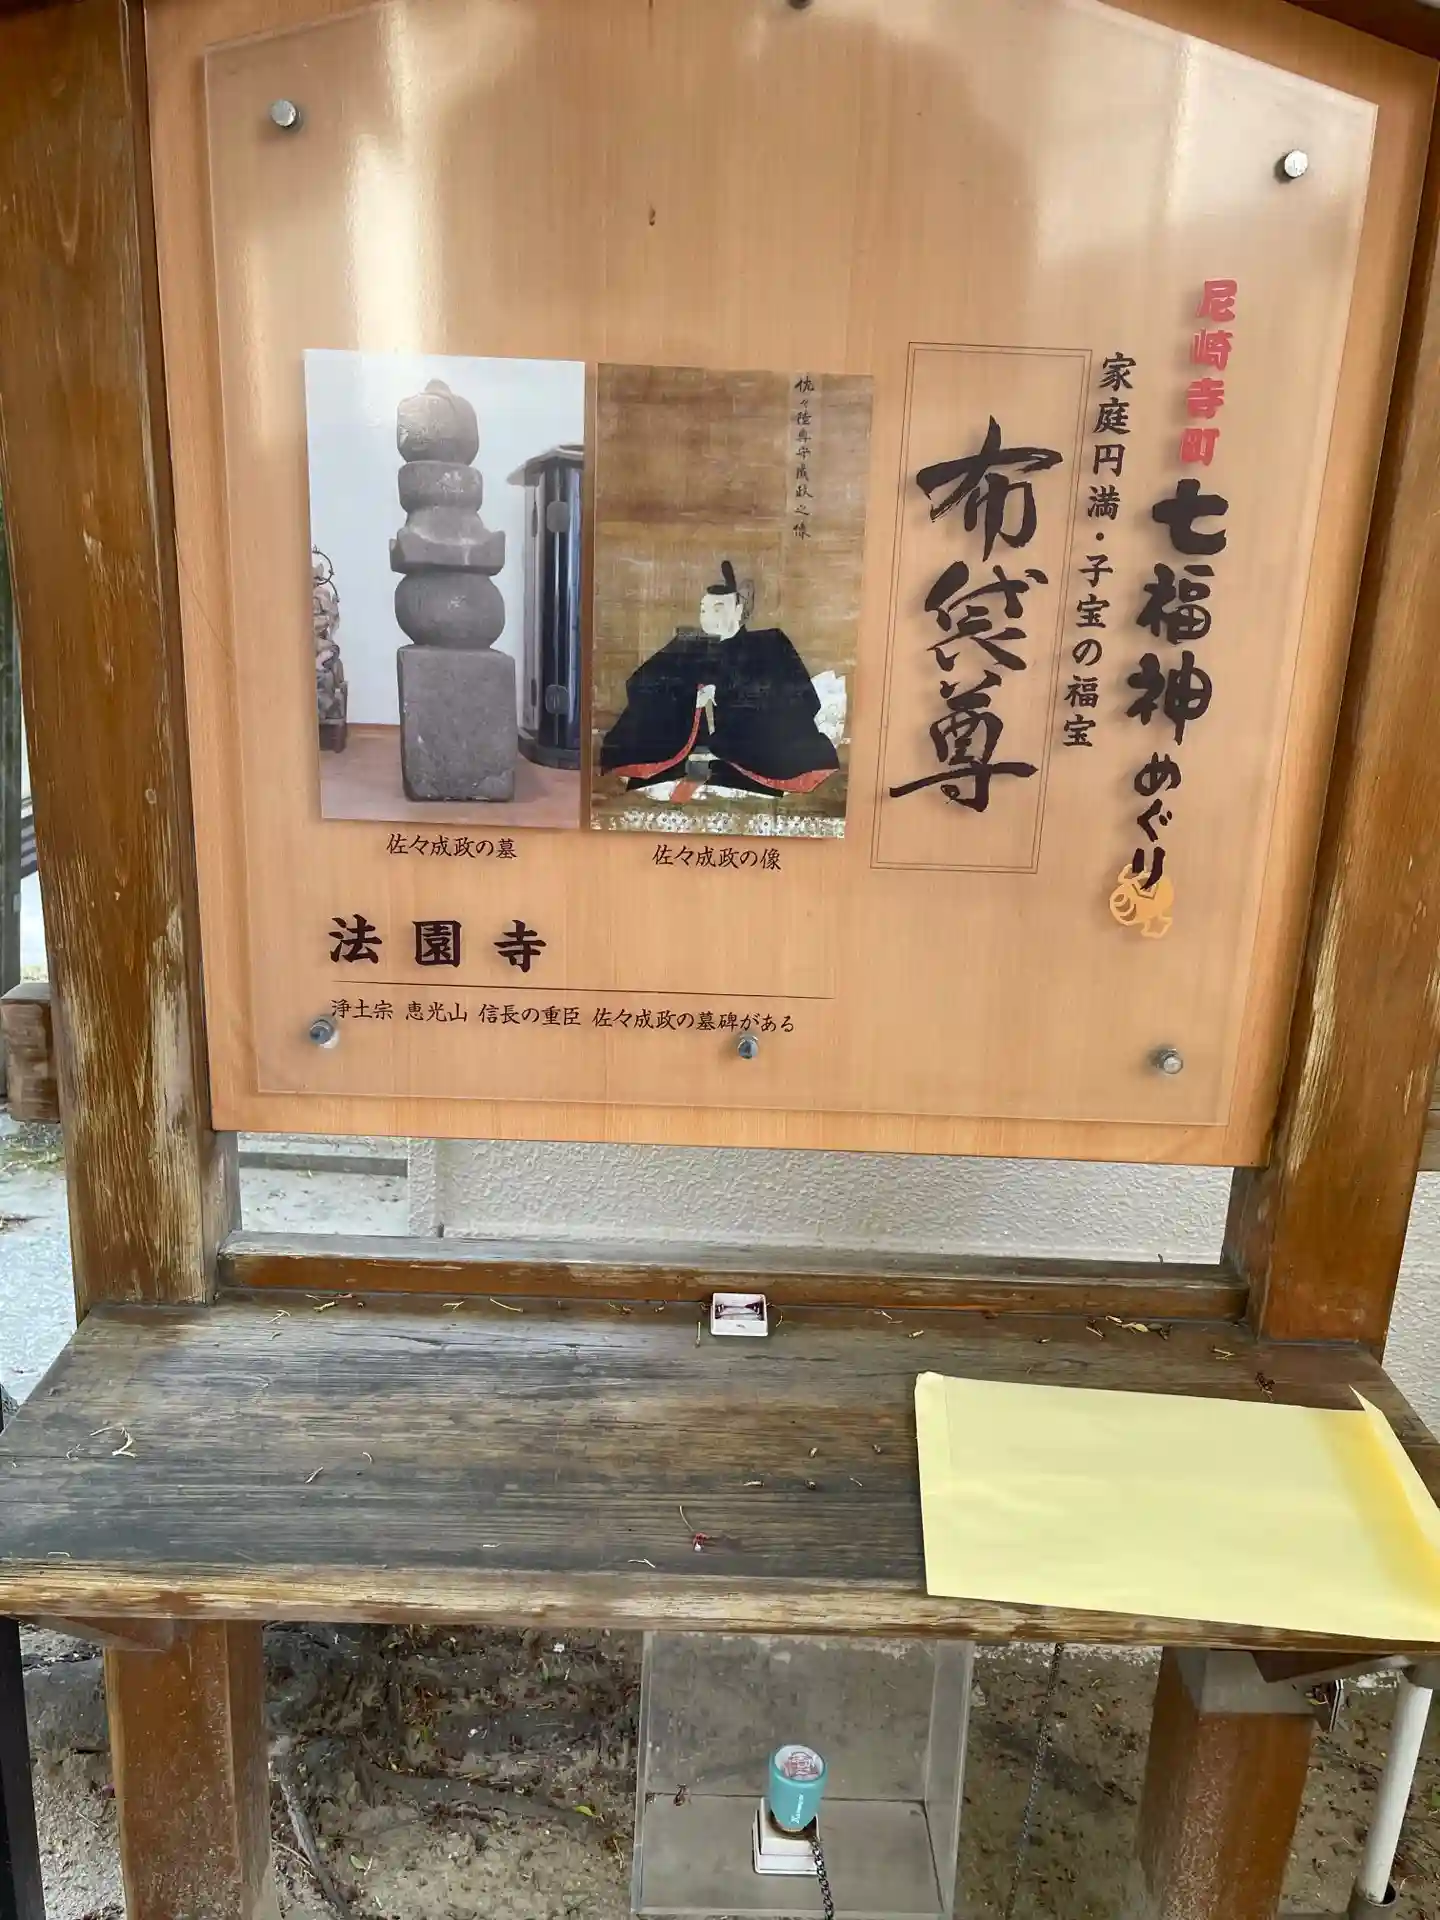 尼崎寺町 七福神めぐり
家庭円満・子宝の福宝
布袋尊
佐々陸奥守成政之像
佐々成政の像
佐々成政の墓
法園寺
浄土宗 恵光山 信長の重臣 佐々成政の墓碑がある